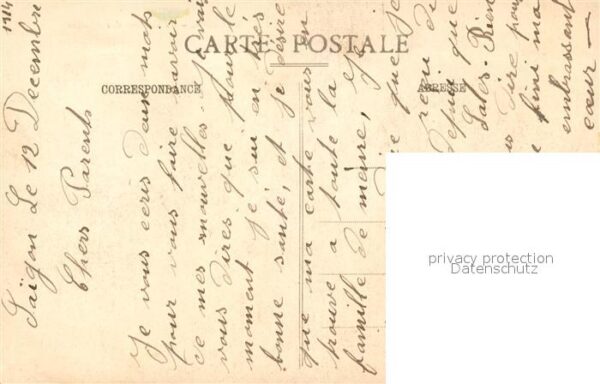 CARTE POSTALE
CORRESPONDANCE
ADRESSE
Saïgon Le 12 Décembre 1914
Chers Parents
Je vous ecris deux mots
pour vous faire savoir
de mes nouvelles. Je vais
vous dires que pour le
moment je sui en très
bonne santé, et je désire
que ma carte vous
trouve a toute la
famille de meme, et
que je
reçu de
depui que
Rien
dire pour
fini ma
embrassant
cœur —
privacy protection
Datenschutz